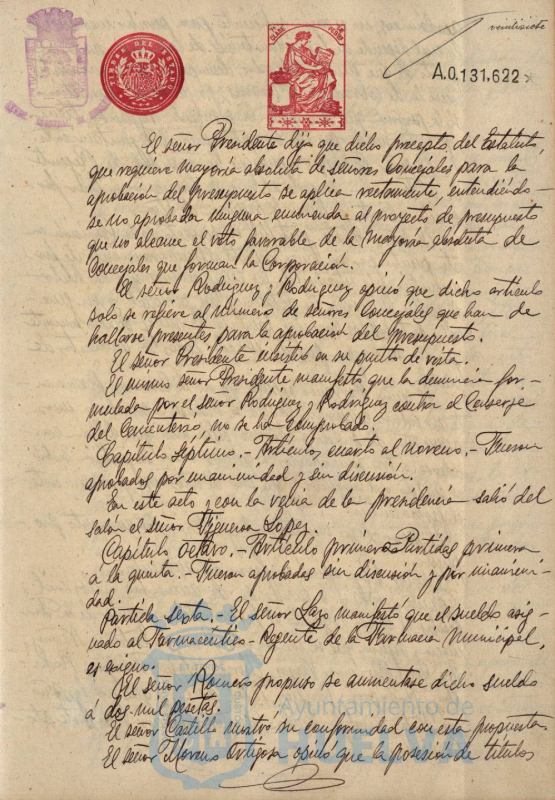 veintisiete
TIMBRE DEL ESTADO
CLASE
A.0.131.622
El señor Presidente dijo que dicho precepto del Estatuto,
que requiere mayoría absoluta de señores Concejales para la
aprobación del Presupuesto se aplica rectamente, entendiendo-
se no aprobada ninguna enmienda al proyecto de presupuesto
que no alcance el voto favorable de la Mayoría absoluta de
Concejales que forman la Corporación.
El señor Rodríguez y Rodríguez opinó que dicho artículo
solo se refiere al número de señores Concejales que han de
hallarse presentes para la aprobación del Presupuesto.
El señor Presidente insistió en su punto de vista.
El mismo señor Presidente manifestó que la denuncia for-
mulada por el señor Rodríguez y Rodríguez contra el Conserje
del Cementerio, no se ha comprobado.
Capítulo Séptimo.- Artículos cuarto al noveno.- Fueron
aprobados por unanimidad y sin discusión.
En este acto y con la venia de la presidencia salió del
salón el señor Figueroa Lopez.
Capítulo octavo.- Artículo primero Partidas primera
a la quinta.- Fueron aprobadas sin discusión y por unanimi-
dad.
Partida sexta.- El señor Lazo manifestó que el sueldo asig-
nado al Farmacéutico-Regente de la Farmacia Municipal,
es exiguo.
El señor Romero propuso se aumentase dicho sueldo
á dos mil pesetas.
El señor Castillo mostró su conformidad con esta propuesta
El señor Moreno Ortigosa opinó que la posesión de títulos
Ayuntamiento de
HUELVA